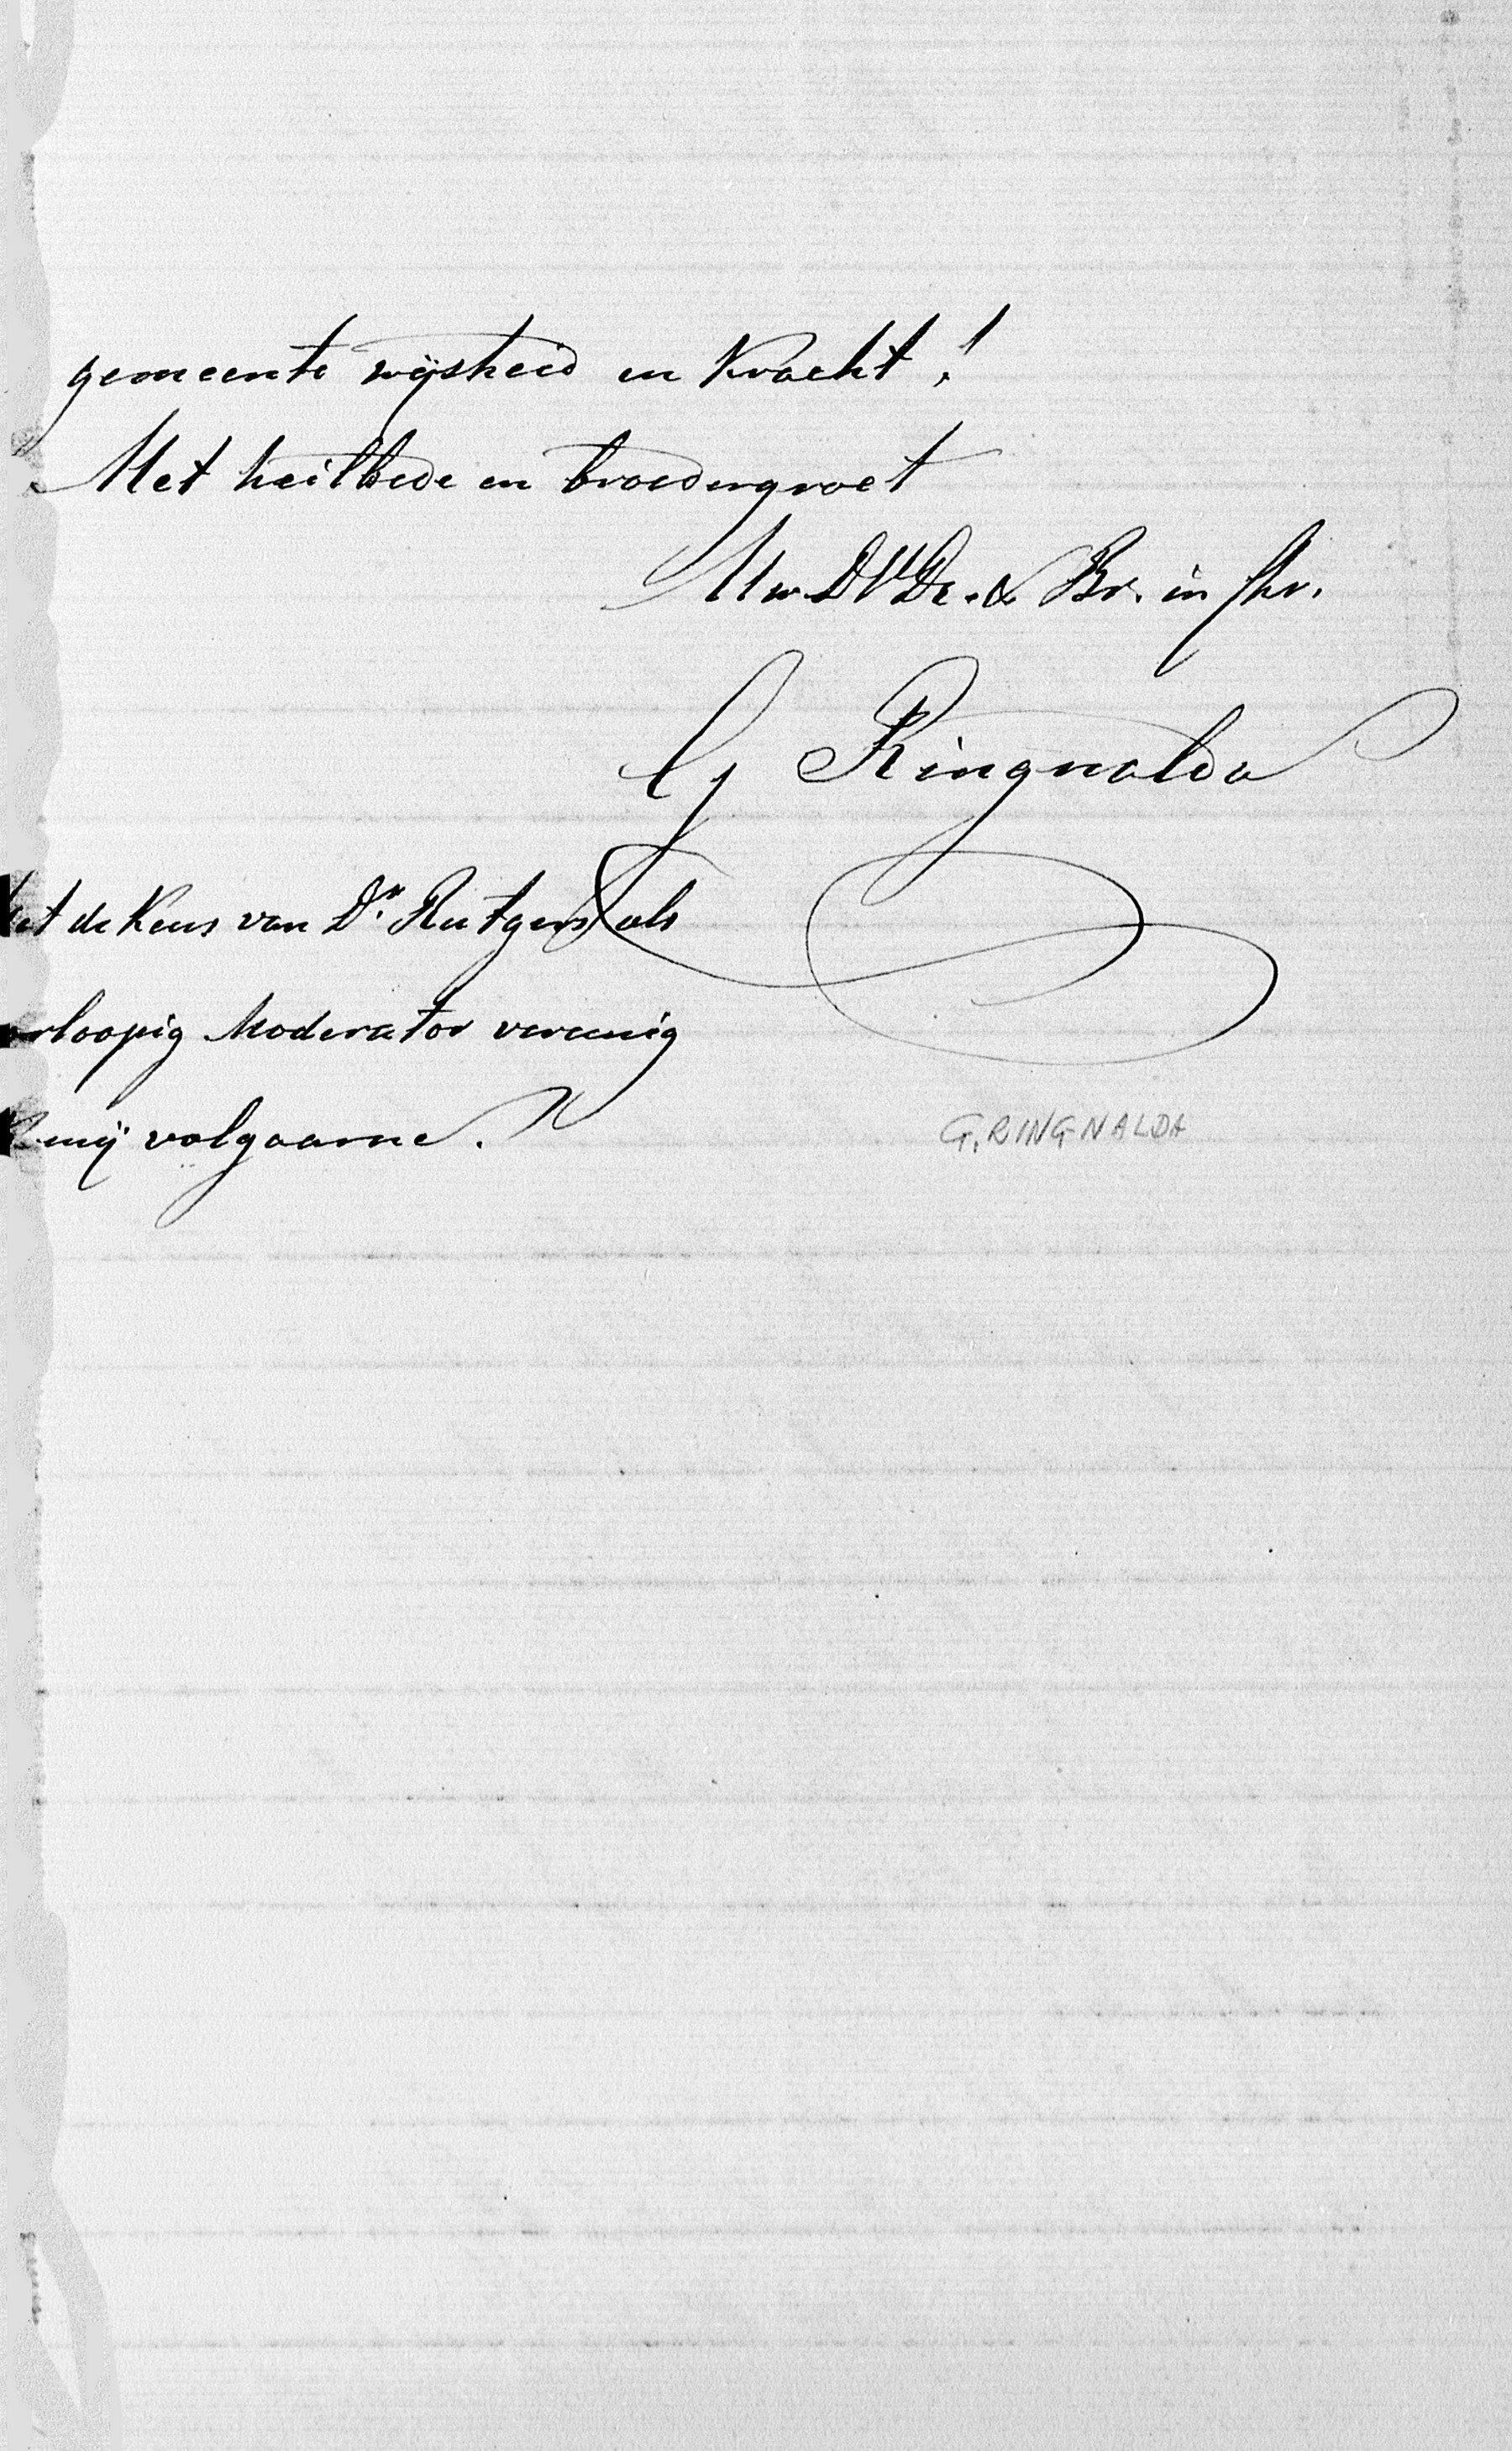 gemeente wijsheid en Kracht!
Met heilbede en broedergroet
Uw DVDr. & Br. in Chr.
G Ringnalda
et de Keus van Dr. Rutgers als
orloopig Moderator vereenig
k mij volgaarne.
G. RINGNALDA